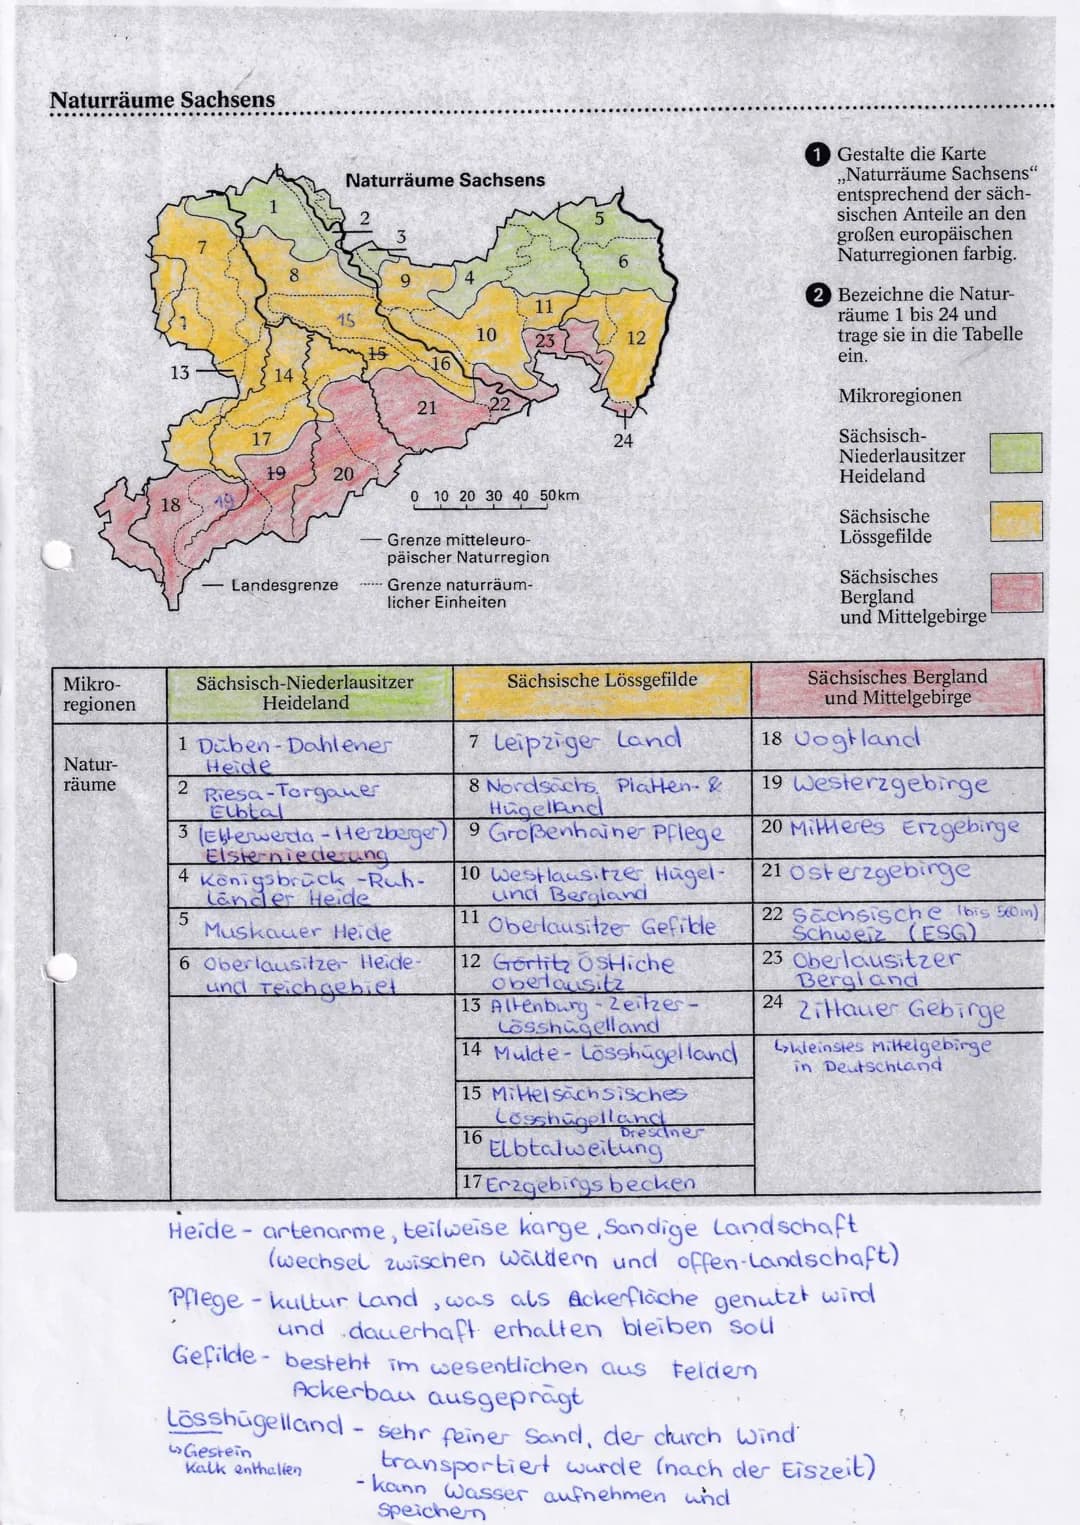 Naturräume Sachsens
Naturräume Sachsens
1
2
3
4
5
6
7
8
9
10
11
12
13
14
15
15
16
17
18
19
19
20
21
22
23
24
7
0 10 20 30 40 50km
Grenze mitteleuro-
päischer Naturregion
Landesgrenze
Grenze naturräum-
licher Einheiten
1 Gestalte die Karte
„Naturräume Sachsens“
entsprechend der säch-
sischen Anteile an den
großen europäischen
Naturregionen farbig.
2 Bezeichne die Natur-
räume 1 bis 24 und
trage sie in die Tabelle
ein.
Mikroregionen
Sächsisch-
Niederlausitzer
Heideland
Sächsische
Lössgefilde
Sächsisches
Bergland
und Mittelgebirge
Mikro-
regionen
Sächsisch-Niederlausitzer
Heideland
Sächsische Lössgefilde
Sächsisches Bergland
und Mittelgebirge
Natur-
räume
1 Düben-Dahlener
Heide
2 Riesa-Torgauer
Elbtal
3 (Elsterwerda-Herzberger)
Elsterniederung
4 Königsbrück-Ruh-
länder Heide
5 Muskauer Heide
6 Oberlausitzer Heide-
und Teichgebiet
7 Leipziger Land
8 Nordsächs. Platten- &
Hügelland
9 Großenhainer Pflege
10 Westlausitzer Hügel-
und Bergland
11 Oberlausitzer Gefilde
12 Görlitz Östliche
Oberlausitz
13 Altenburg-Zeitzer-
Lösshügelland
14 Mulde-Lösshügelland
15 Mittelsächsisches
Lösshügelland
16 Dresdner
Elbtalweitung
17 Erzgebirgsbecken
18 Vogtland
19 Westerzgebirge
20 Mittleres Erzgebirge
21 Osterzgebirge
22 Sächsische (bis 560m)
Schweiz (ESG)
23 Oberlausitzer
Bergland
24 Zittauer Gebirge
↳ kleinstes Mittelgebirge
in Deutschland
Heide - artenarme, teilweise karge, Sandige Landschaft
(wechsel zwischen Wäldern und offen-Landschaft)
Pflege - kultur Land, was als Ackerfläche genutzt wird
und dauerhaft erhalten bleiben soll
Gefilde - besteht im wesentlichen aus Feldern
Ackerbau ausgeprägt
Lösshügelland - sehr feiner Sand, der durch Wind
↳ Gestein
Kalk enthalten
transportiert wurde (nach der Eiszeit)
- kann Wasser aufnehmen und
speichern